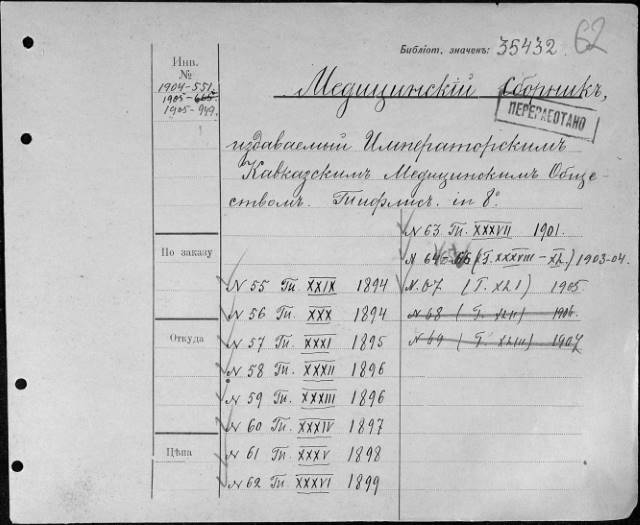 62
Библіот. значенъ: 35432
Инв.
№
1904-551
1905-
1905-949
Медицинскій Сборникъ,
ПЕРЕРАБОТАНО
издаваемый Императорскимъ
Кавказскимъ Медицинскимъ Обще-
ствомъ. Тифлисъ. in 8°
По заказу
Откуда
Цѣна
N 55 Т. XXIX 1894
N 56 Т. XXX 1894
N 57 Т. XXXI 1895
N 58 Т. XXXII 1896
N 59 Т. XXXIII 1896
N 60 Т. XXXIV 1897
N 61 Т. XXXV 1898
N 62 Т. XXXVI 1899
N 63 Т. XXXVII 1901.
N 64-66 (Т. XXXVIII-XL) 1903-04.
N. 67 (Т. XLI) 1905
N 68 (Т. XLII) 1906.
N 69 (Т. XLIII) 1907